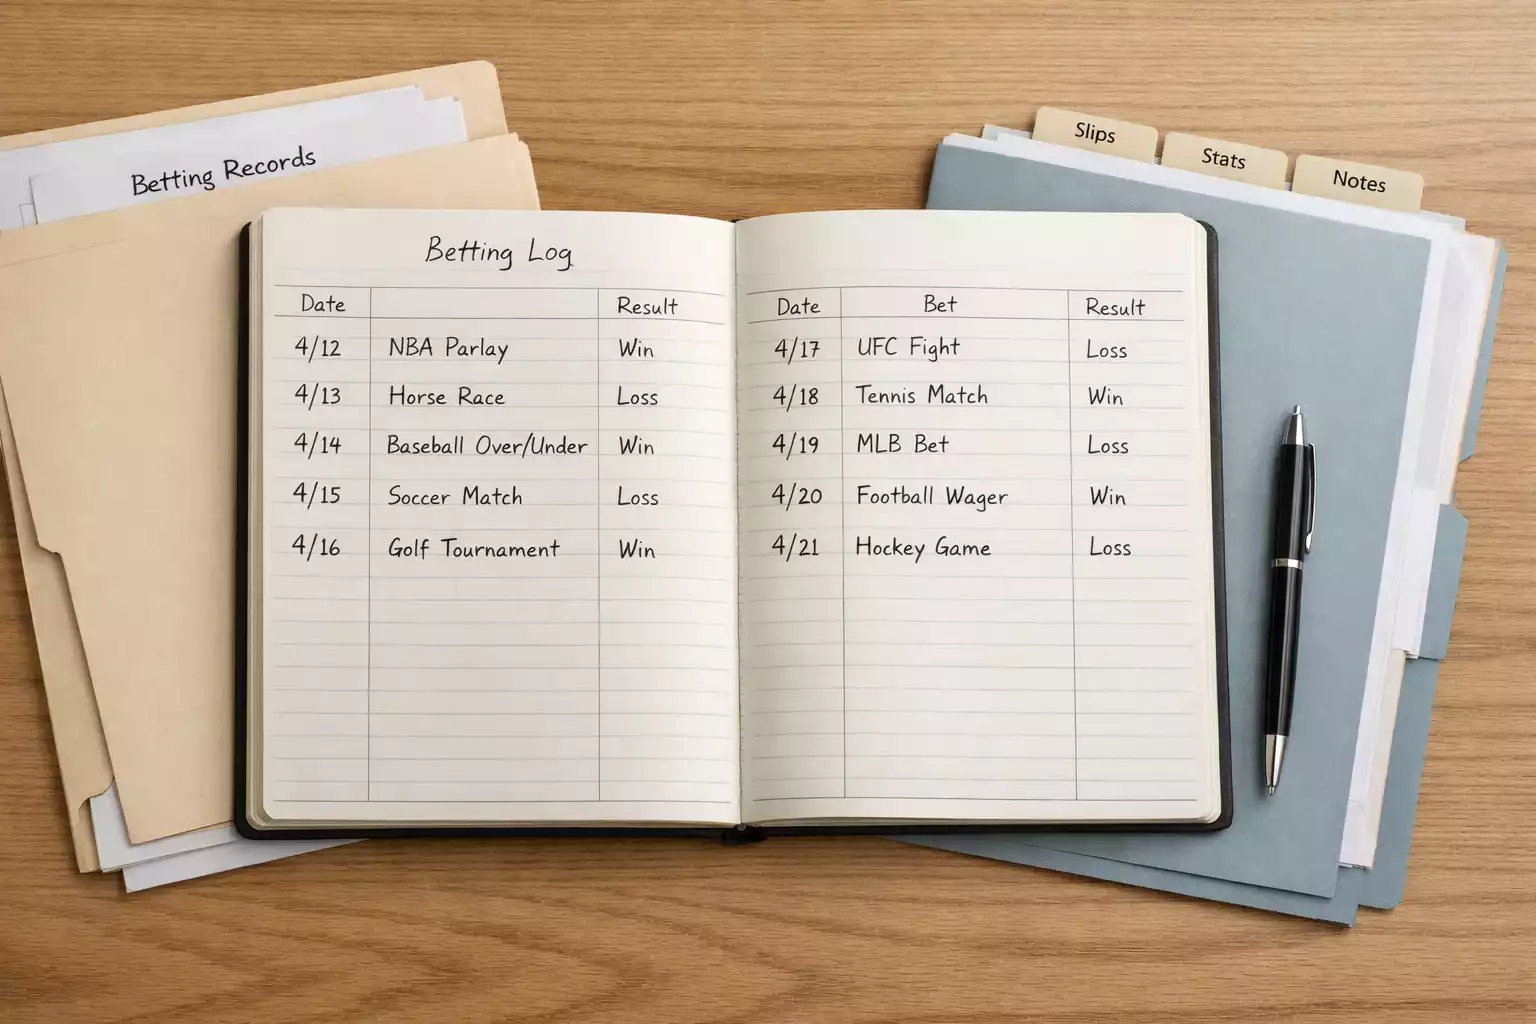 Betting Records
Slips
Stats
Notes
Betting Log
Date Result
4/12 NBA Parlay Win
4/13 Horse Race Loss
4/14 Baseball Over/Under Win
4/15 Soccer Match Loss
4/16 Golf Tournament Win
Date Bet Result
4/17 UFC Fight Loss
4/18 Tennis Match Win
4/19 MLB Bet Loss
4/20 Football Wager Win
4/21 Hockey Game Loss